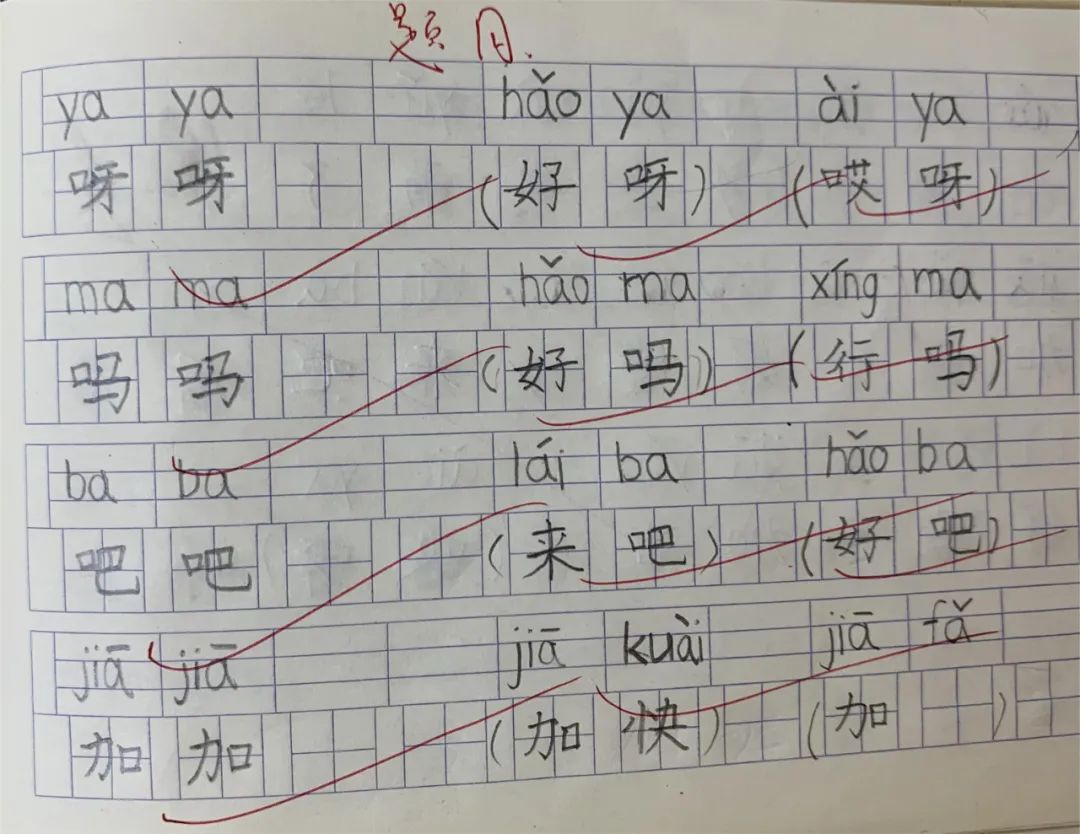 题目.
ya ya hǎo ya ài ya
呀 呀 (好 呀) (哎 呀)
ma ma hǎo ma xíng ma
吗 吗 (好 吗) (行 吗)
ba ba lái ba hǎo ba
吧 吧 (来 吧) (好 吧)
jiā jiā jiā kuài jiā fǎ
加 加 (加 快) (加 )